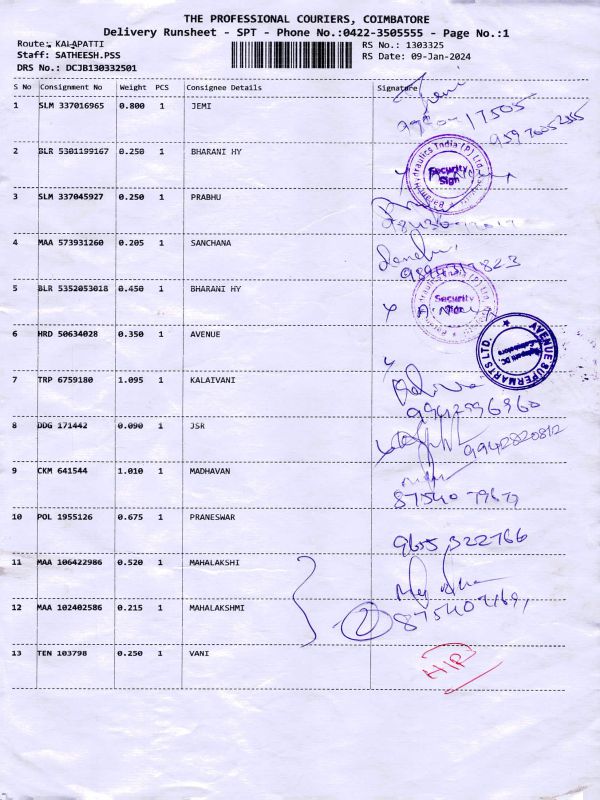 THE PROFESSIONAL COURIERS, COIMBATORE
Delivery Runsheet - SPT - Phone No.:0422-3505555 - Page No.:1
Route: KALAPATTI
RS No.: 1303325
Staff: SATHEESH.PSS
RS Date: 09-Jan-2024
DRS No.: DCJB130332501
S No Consignment No Weight PCS Consignee Details Signature
1 SLM 337016965 0.800 1 JEMI
2 BLR 5301199167 0.250 1 BHARANI HY
Security Sign
3 SLM 337045927 0.250 1 PRABHU
4 MAA 573931260 0.205 1 SANCHANA
5 BLR 5352053018 0.450 1 BHARANI HY
Security
6 HRD 50634028 0.350 1 AVENUE
AVENUE SUPERMARTS LTD.
7 TRP 6759180 1.095 1 KALAIVANI
9942996960
8 DDG 171442 0.090 1 JSR
9942820812
9 CKM 641544 1.010 1 MADHAVAN
10 POL 1955126 0.675 1 PRANESWAR
9655322766
11 MAA 106422986 0.520 1 MAHALAKSHI
12 MAA 102402586 0.215 1 MAHALAKSHMI
2
13 TEN 103798 0.250 1 VANI